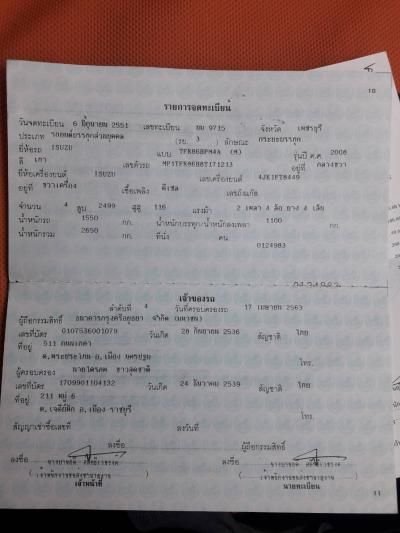 10
รายการจดทะเบียน
วันจดทะเบียน 6 มิถุนายน 2551 เลขทะเบียน บม 9715 จังหวัด เพชรบุรี
ประเภท รถยนต์บรรทุกส่วนบุคคล (รย. 3 ) ลักษณะ กระบะบรรทุก
ยี่ห้อรถ ISUZU แบบ TFR86HPM4A (M) รุ่นปี ค.ศ. 2008
สี เทา เลขตัวรถ MP1TFR86H8T171213 อยู่ที่ กลางขวา
ยี่ห้อเครื่องยนต์ ISUZU เลขเครื่องยนต์ 4JK1FT8449
อยู่ที่ ขวาเครื่อง เชื้อเพลิง ดีเซล เลขถังแก๊ส
จำนวน 4 สูบ 2499 ซีซี 116 แรงม้า 2 เพลา 4 ล้อ ยาง 4 เส้น
น้ำหนักรถ 1550 กก. น้ำหนักบรรทุก/น้ำหนักลงเพลา 1100 กก.
น้ำหนักรวม 2650 กก. ที่นั่ง คน
0124983
เจ้าของรถ
ลำดับที่ 4 วันที่ครอบครองรถ 17 เมษายน 2563
ผู้ถือกรรมสิทธิ์ ธนาคารกรุงศรีอยุธยา จำกัด (มหาชน)
เลขที่บัตร 0107536001079 วันเกิด 28 กันยายน 2536 สัญชาติ ไทย
ที่อยู่ 511 ถนนเทศา
ต.พระปฐมเจดีย์ อ.เมือง นครปฐม โทร.
ผู้ครอบครอง
เลขที่บัตร 1709901104132 วันเกิด 24 ธันวาคม 2539 สัญชาติ ไทย
ที่อยู่ 211 หมู่ 6
ต.เจดีย์หัก อ.เมือง ราชบุรี โทร.
สัญญาเช่าซื้อเลขที่ ลงวันที่
ลงชื่อ ผู้ถือกรรมสิทธิ์
ลงชื่อ ลงชื่อ
เจ้าหน้าที่ นายทะเบียน
11